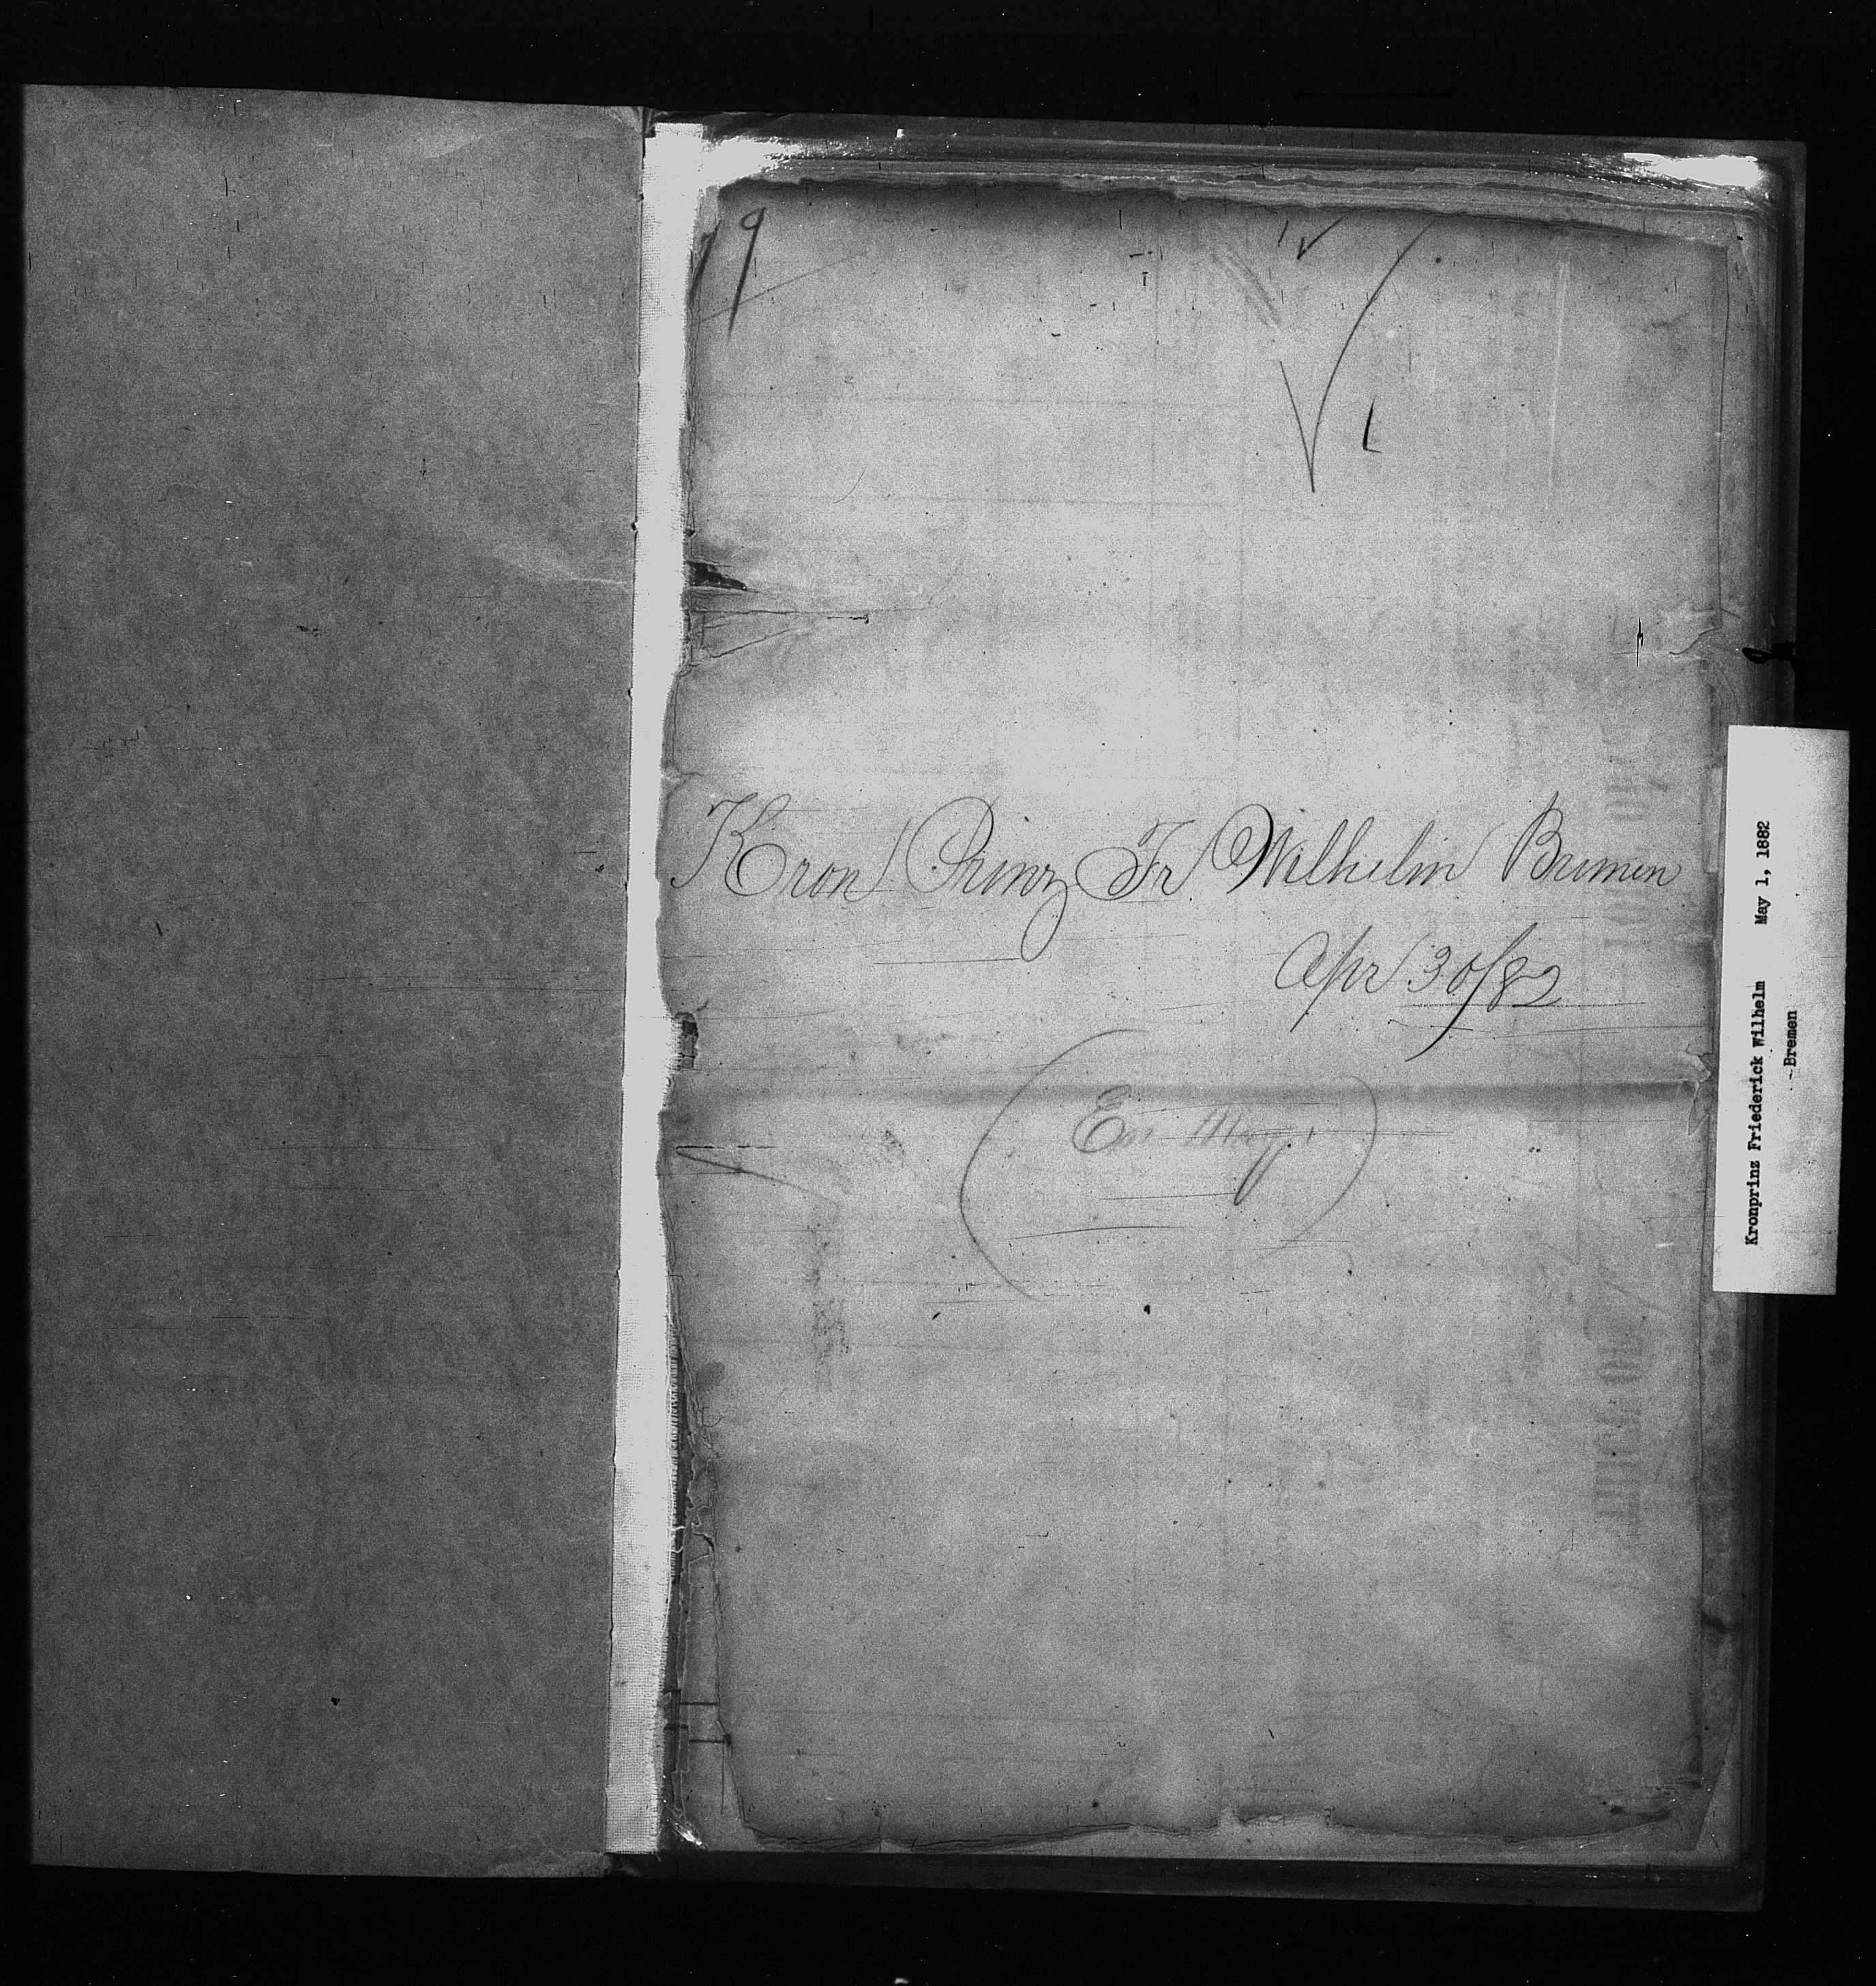 19
Kron Prinz Fr Wilhelm Bremen
Apr 30/82
(En May 1)
Kronprinz Friederick Wilhelm May 1, 1882
Bremen